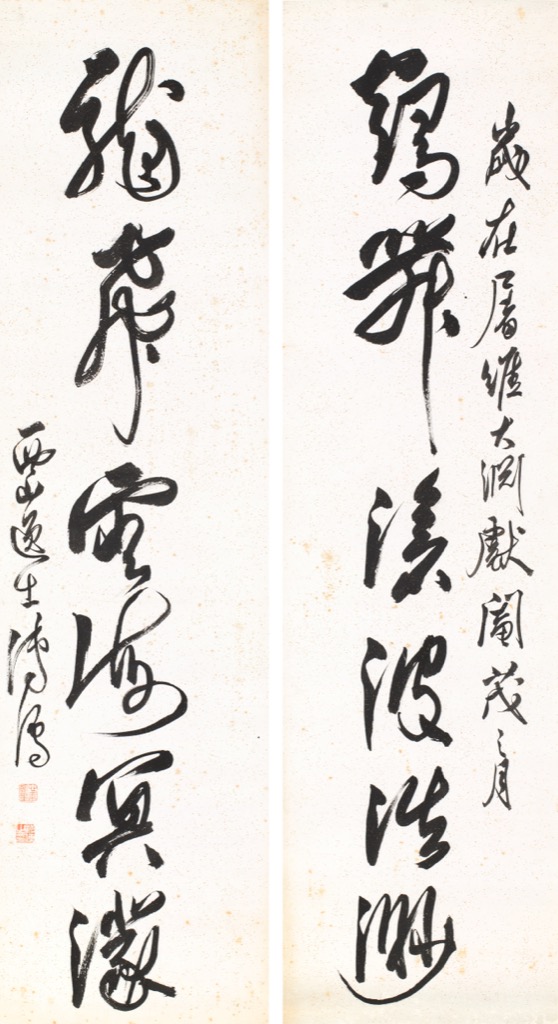 歲在屠維大淵獻閹茂之月
鶴舞滄波浩渺
龍飛雲海冥濛
西山逸士溥儒